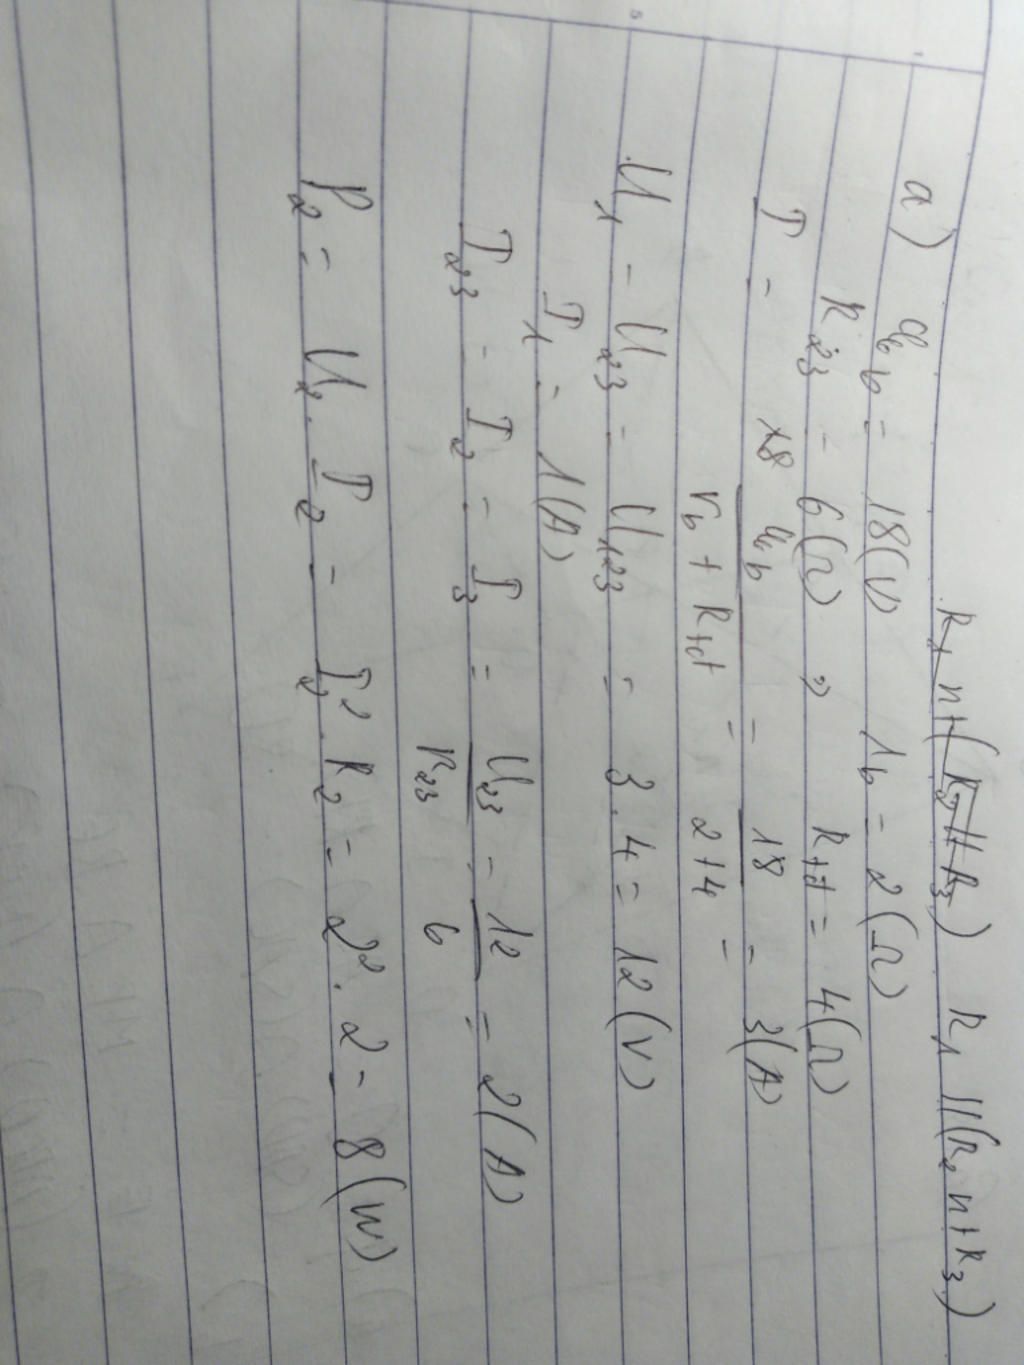 R₁ nt (R₂ // R₃) R₁ // (R₂ nt R₃)
a) ℰb = 18(V) rb = 2(Ω)
R₂₃ = 6(Ω) ⇒ Rtđ = 4(Ω)
I = ℰb / (rb + Rtđ) = 18 / (2+4) = 3(A)
U₁ = U₂₃ = U₁₂₃ = 3.4 = 12(V)
I₁ = 1(A)
I₂₃ = I₂ = I₃ = U₂₃ / R₂₃ = 12 / 6 = 2(A)
P₂ = U₂.I₂ = I₂².R₂ = 2².2 = 8(W)